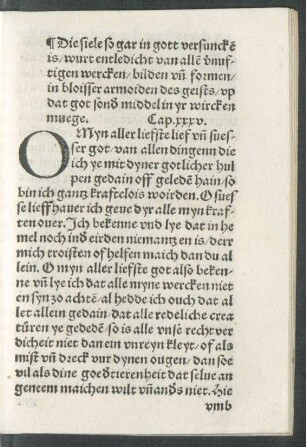 ¶ Die siele so gar in gott versunckē
is/ wurt entledicht van allē vnuf-
tigen wercken/ bilden vn̄ formen/
in bloisser armoiden des geists/ vp
dat got sond̕ middel in yr wircken
muege. Cap.xxxv.
O Myn aller liefste lief vn̄ sues-
ser got/ van allen dingenn die
ich ye mit dyner gotlicher hul
pen gedain off geledē hain/ so
bin ich gantz kraftelois woirden. O sues
se lieffhauer ich geue dyr alle myn kraf-
ten ouer. Ich bekenne vnd lye dat in he
mel noch ind eirden niemantz en is/ derr
mich troisten of helfen maich dan du al
lein. O myn aller liefste got also beken-
ne vn̄ lye ich dat alle myne wercken niet
en syn zo achtē/ al hedde ich ouch dat al
let allein gedain/ dat alle redeliche crea
türen ye gededē/ so is alle vnse recht ver
dicheit niet dan ein vnreyn kleyt/ of als
mist vn̄ dreck vur dynen ougen/ dan soe
vil als dine goedtierenheit dat selue an
geneem maichen wilt vn̄ and̕s niet. Hie
vmb